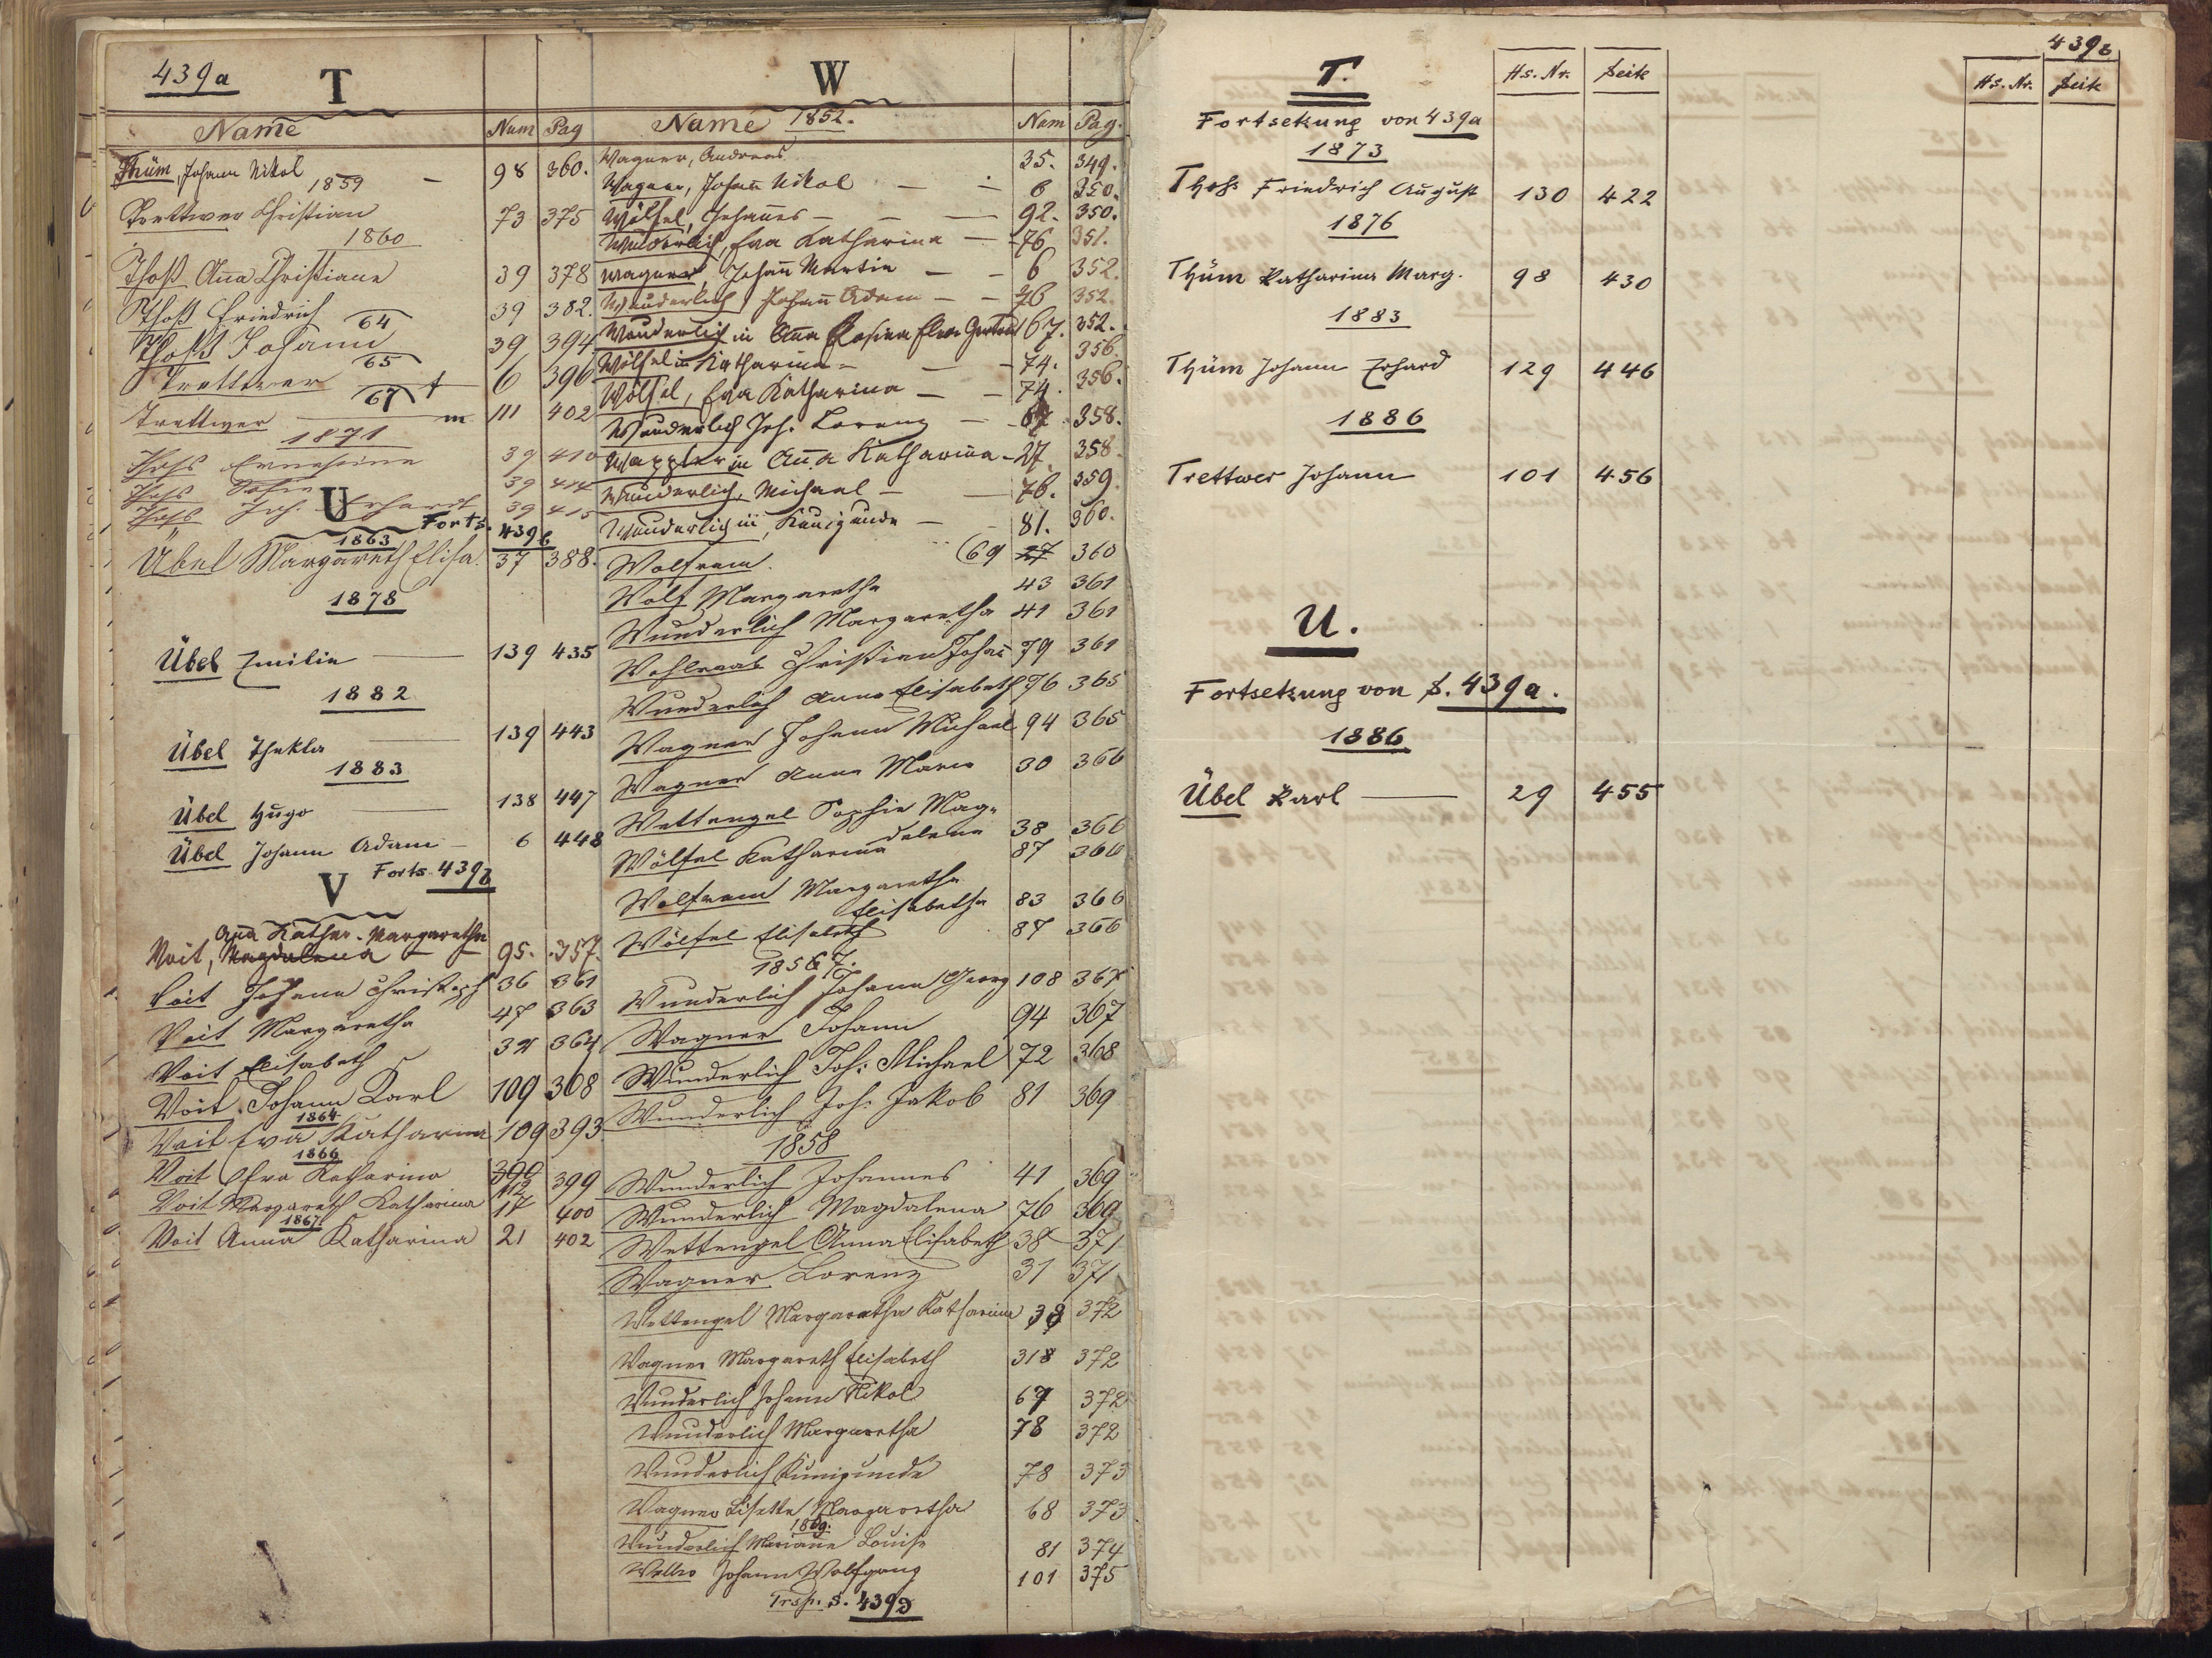 439a
T
Name
Num
Pag
Thüm, Johann Nikol — 98 360.
1859
Trettwer Christian 73 375
1860
Thoß Anna Christiane 39 378
Thoß Friedrich 39 382.
64
Thoß Johann 39 394
65
Trettwer 6 396
67 †
Trettwer 111 402
1871
Thoß Ernestine 39 410
Thoß Sofie 39 414
Thoß Joh. Erhardt 39 415
U
Forts. 439b
1863
Übel Margareth Elisa. 37 388.
1878
Übel Emilie 139 435
1882
Übel Thekla 139 443
1883
Übel Hugo 138 447
Übel Johann Adam — 6 448
Forts. 439b
V
Aña Kathar. Margaretha
Voit, Magdalena 95. 357.
Voit Johann Christoph 36 361
Voit Margaretha 47 363
Voit Elisabeth 364
Voit Johann Karl 109 368
1864
Voit Eva Katharina 109 393
1866
Voit Eva Katharina 112 399
Voit Margareth Katharina 17 400
1867
Voit Anna Katharina 21 402
W
Name 1852.
Num
Pag.
Wagner, Andreas 35. 349.
Wagner, Johañ Nikol — — 6 350.
Wölfel, Johañes — — — 92. 350.
Wunderlich, Eva Katharina — 76 351.
Wagner, Johañ Martin — — 6 352.
Wunderlich, Johañ Adam — — 76 352.
Wunderlich in Aña Rosina 67. 352.
Wölfel in Katharina — — 74. 356.
Wölfel, Eva Katharina — — 74. 356.
Wunderlich Joh. Lorenz — 67 358.
Wappler in Aña Katharina — 27 358.
Wunderlich, Michael — — 76. 359.
Wunderlich in, Kunigunda — 81. 360.
Wolfram. 69 27 360
Wolf Margaretha 43 361
Wunderlich Margaretha 41 361
Wohlraab Christian Johañ 79 361
Wunderlich Anna Elisabeth 76 365
Wagner Johann Michael 94 365
Wagner Anna Maria 30 366
Wettengel Sophie Mag-
dalena 38 366
Wölfel Katharina 87 366
Wolfram Margaretha
Elisabetha 83 366
Wölfel Elisabeth 87 366
1856 7.
Wunderlich Johann Georg 108 367
Wagner Johann 94 367
Wunderlich Joh: Michael 72 368
Wunderlich Joh: Jakob 81 369
1858
Wunderlich Johannes 41 369
Wunderlich Magdalena 76 369
Wettengel Anna Elisabeth 38 371
Wagner Lorenz 31 371
Wettengel Margaretha Katharina 38 372
Wagner Margareth Elisabeth 318 372
Wunderlich Johann Nikol 67 372
Wunderlich Margaretha 78 372
Wunderlich Kunigunda 78 373
Wagner Lisette Margaretha 68 373
1859.
Wunderlich Mariane Louise 81 374
Johann Wolfgang 101 375
Trsp. S. 439D
439b
T.
Hs. Nr.
Seite
Hs. Nr.
Seite
Fortsetzung von 439a
1873
Thoß Friedrich August 130 422
1876
Thüm Katharina Marg. 98 430
1883
Thüm Johann Erhard 129 446
1886
Trettwer Johann 101 456
U.
Fortsetzung von S. 439a.
1886
Übel Karl — 29 455